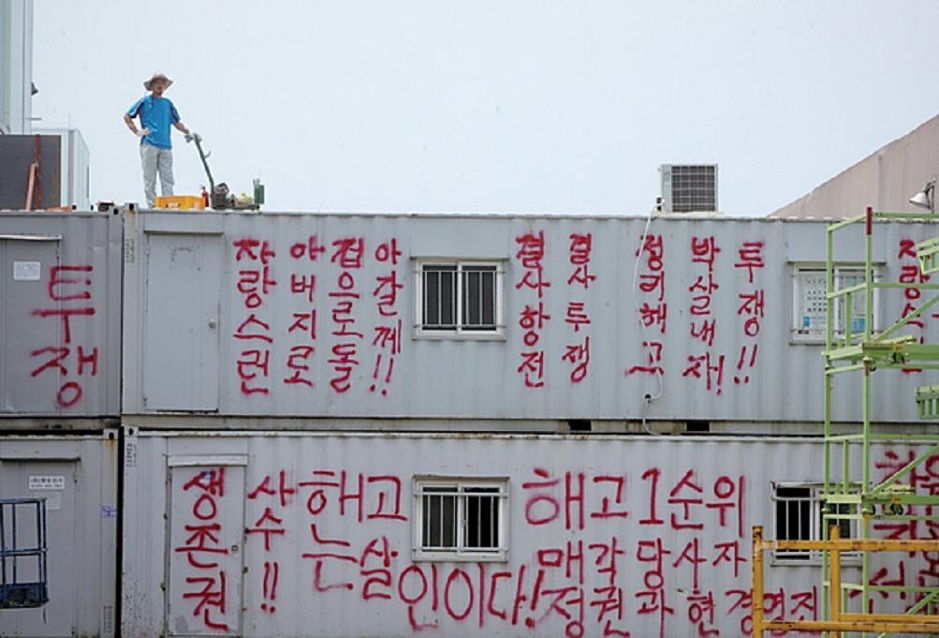 투쟁
자랑스런
아버지로
집으로돌
아갈께!!
결사항전
결사투쟁
정리해고
박살내자!
투쟁!!
자랑
생존권
사수!!
해고
는살인이다!
해고1순위
매각당사자
정권과현경영진